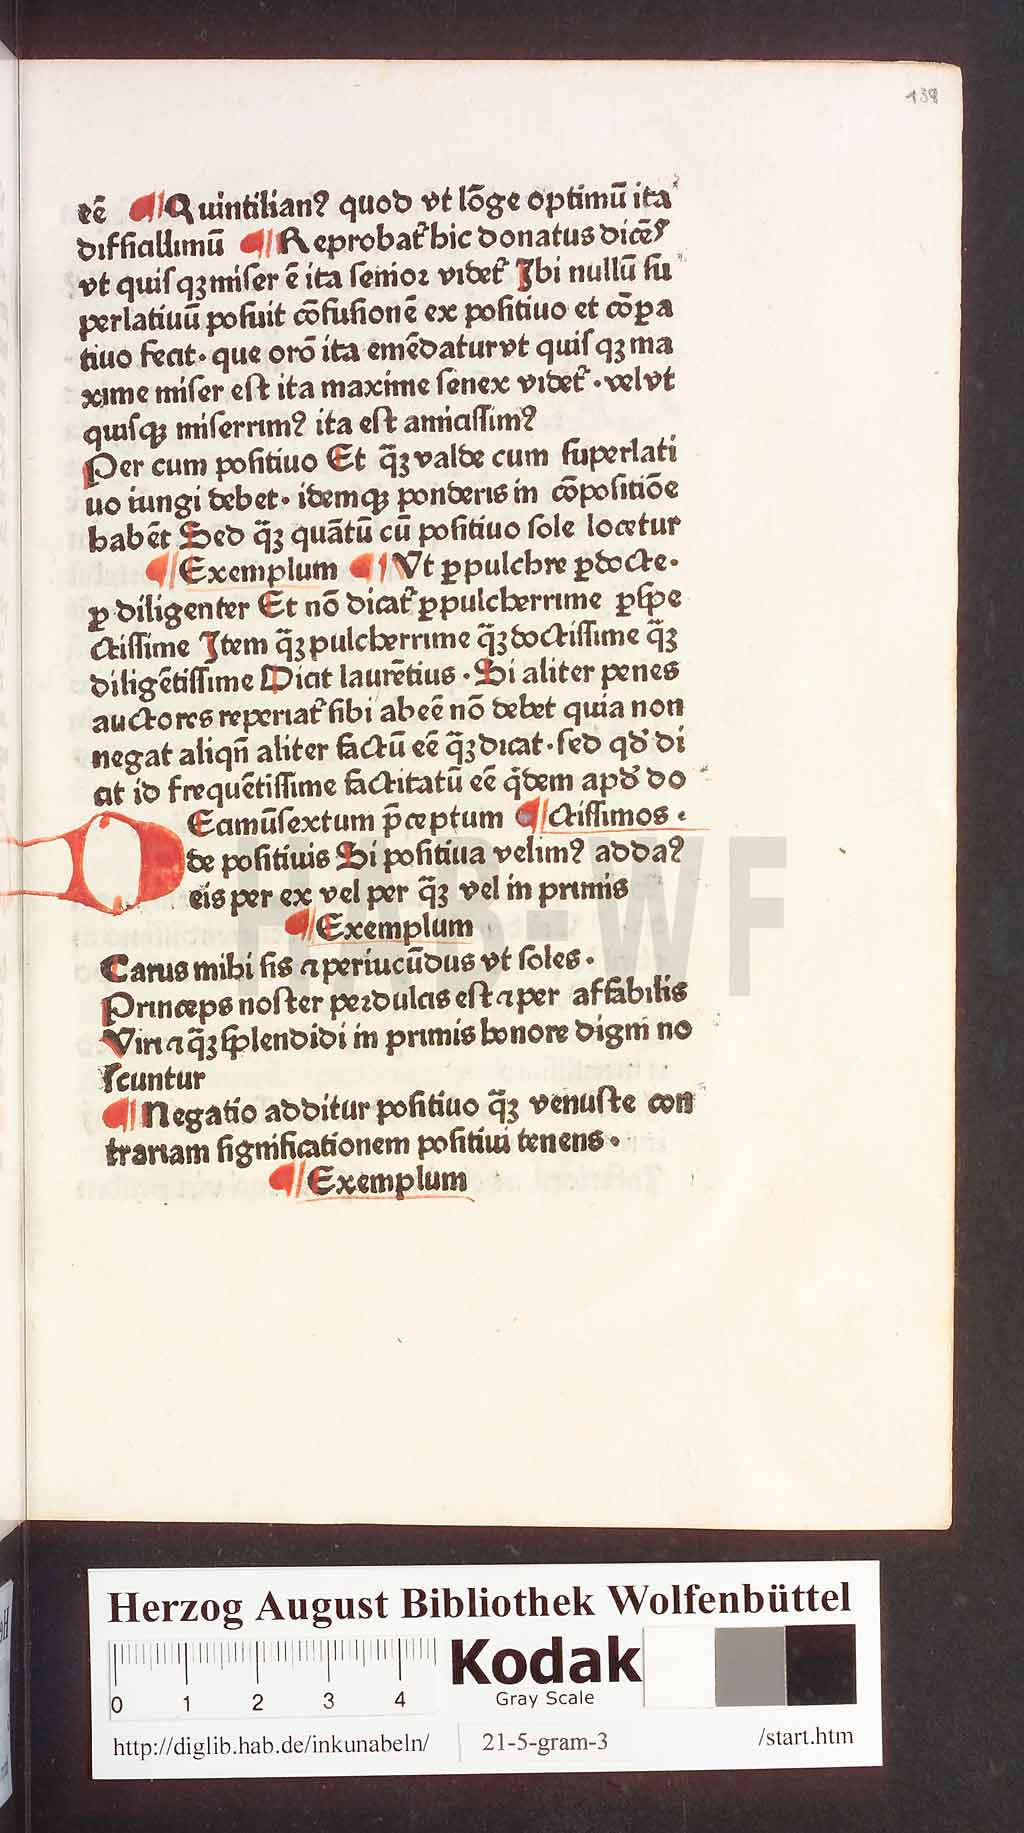 138
eē ¶ Quintilianꝰ quod vt lōge optimū ita
difficillimū ¶ Reprobatᷣ hic donatus dicēs
vt quiſqꝫ miſer ē ita ſenioꝛ videtᷣ Ibi nullū ſu
perlatiuū poſuit cōfuſionē ex poſitiuo et cōpa
tiuo fecit· que orō ita emēdatur vt quiſqꝫ ma
xime miſer eſt ita maxime ſenex videtᷣ· velvt
quiſqꝫ miſerrimꝰ ita eſt amiciſſimꝰ
Per cum poſitiuo Et q̄ꝫ valde cum ſuperlati
uo iungi debet· idemqꝫ ponderis in cōpoſitiōe
habēt Sed q̄ꝫ quātū cū poſitiuo ſole locetur
¶ Exemplum ¶ Vt ꝑpulchre ꝑdocte·
ꝑ diligenter Et nō dicatᷣ ꝑpulcherrime ꝑſpe
ctiſſime Item q̄ꝫ pulcherrime q̄ꝫ doctiſſime q̄ꝫ
diligētiſſime Dicit laurētius· Si aliter penes
auctores reperiatᷣ ſibi abeē nō debet quia non
negat aliqn̄ aliter factū eē q̄ꝫ dicat· ſed qď di
cit id frequētiſſime factitatū eē q̄dem apď do
Eamūſextum p̄ceptum ¶ ctiſſimos·
de poſitiuis Si poſitiua velimꝰ addaꝰ
eis per ex vel per q̄ꝫ vel in primis
¶ Exemplum
Carus mihi ſis ⁊ periucūdus vt ſoles·
Princeps noſter peꝛdulcis eſt ⁊ per affabilis
Viri ⁊ q̄ꝫ ſplendidi in primis honore digni no
ſcuntur
¶ Negatio additur poſitiuo q̄ꝫ venuſte con
trariam ſignificationem poſitiui tenens·
¶ Exemplum
HAB-WF
Herzog August Bibliothek Wolfenbüttel
0 1 2 3 4
Kodak
Gray Scale
http://diglib.hab.de/inkunabeln/ 21-5-gram-3 /start.htm